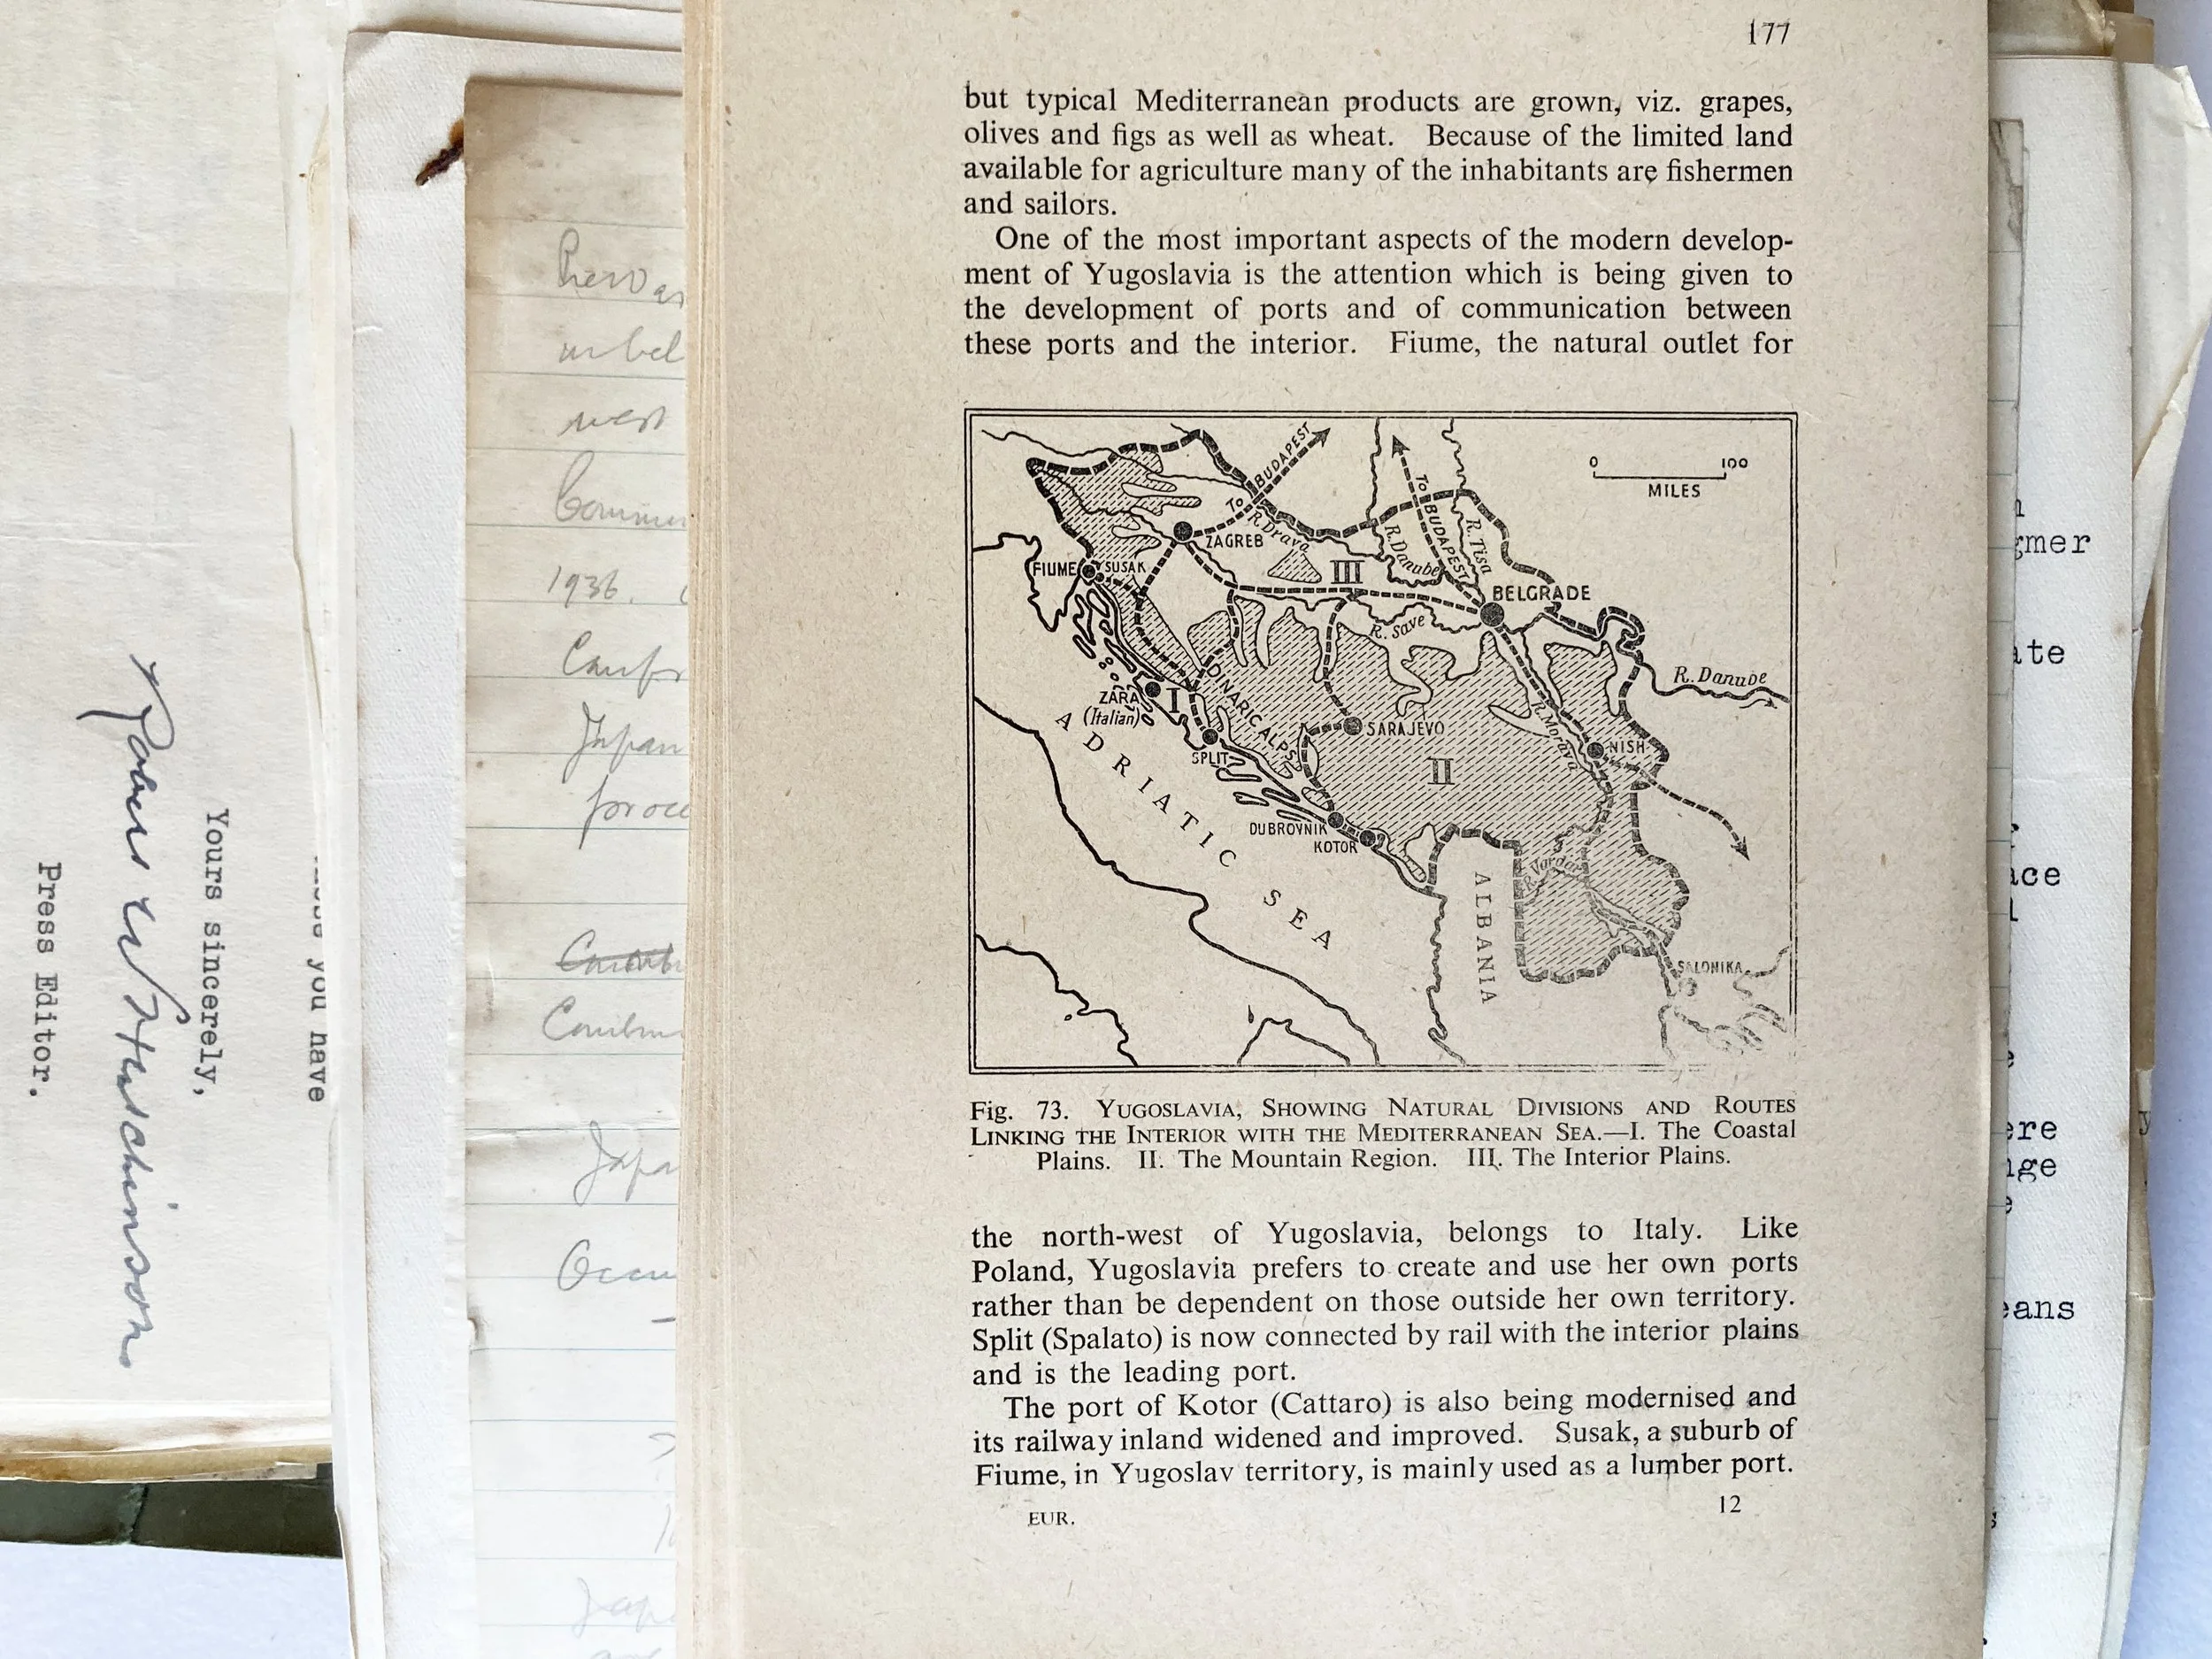 177
but typical Mediterranean products are grown, viz. grapes,
olives and figs as well as wheat. Because of the limited land
available for agriculture many of the inhabitants are fishermen
and sailors.
One of the most important aspects of the modern develop-
ment of Yugoslavia is the attention which is being given to
the development of ports and of communication between
these ports and the interior. Fiume, the natural outlet for
0 100
MILES
To BUDAPEST
To BUDAPEST
R. Drava
R. Danube
R. Tisa
ZAGREB
III
FIUME
SUSAK
BELGRADE
R. Save
R. Danube
ZARA
(Italian)
I
DINARIC ALPS
SARAJEVO
R. Morava
NISH
SPLIT
II
ADRIATIC SEA
DUBROVNIK
KOTOR
R. Vardar
ALBANIA
SALONIKA
Fig. 73. YUGOSLAVIA, SHOWING NATURAL DIVISIONS AND ROUTES
LINKING THE INTERIOR WITH THE MEDITERRANEAN SEA.—I. The Coastal
Plains. II. The Mountain Region. III. The Interior Plains.
the north-west of Yugoslavia, belongs to Italy. Like
Poland, Yugoslavia prefers to create and use her own ports
rather than be dependent on those outside her own territory.
Split (Spalato) is now connected by rail with the interior plains
and is the leading port.
The port of Kotor (Cattaro) is also being modernised and
its railway inland widened and improved. Susak, a suburb of
Fiume, in Yugoslav territory, is mainly used as a lumber port.
EUR. 12
you have
Yours sincerely,
Hutchinson
Press Editor.
west
1936.
Japan